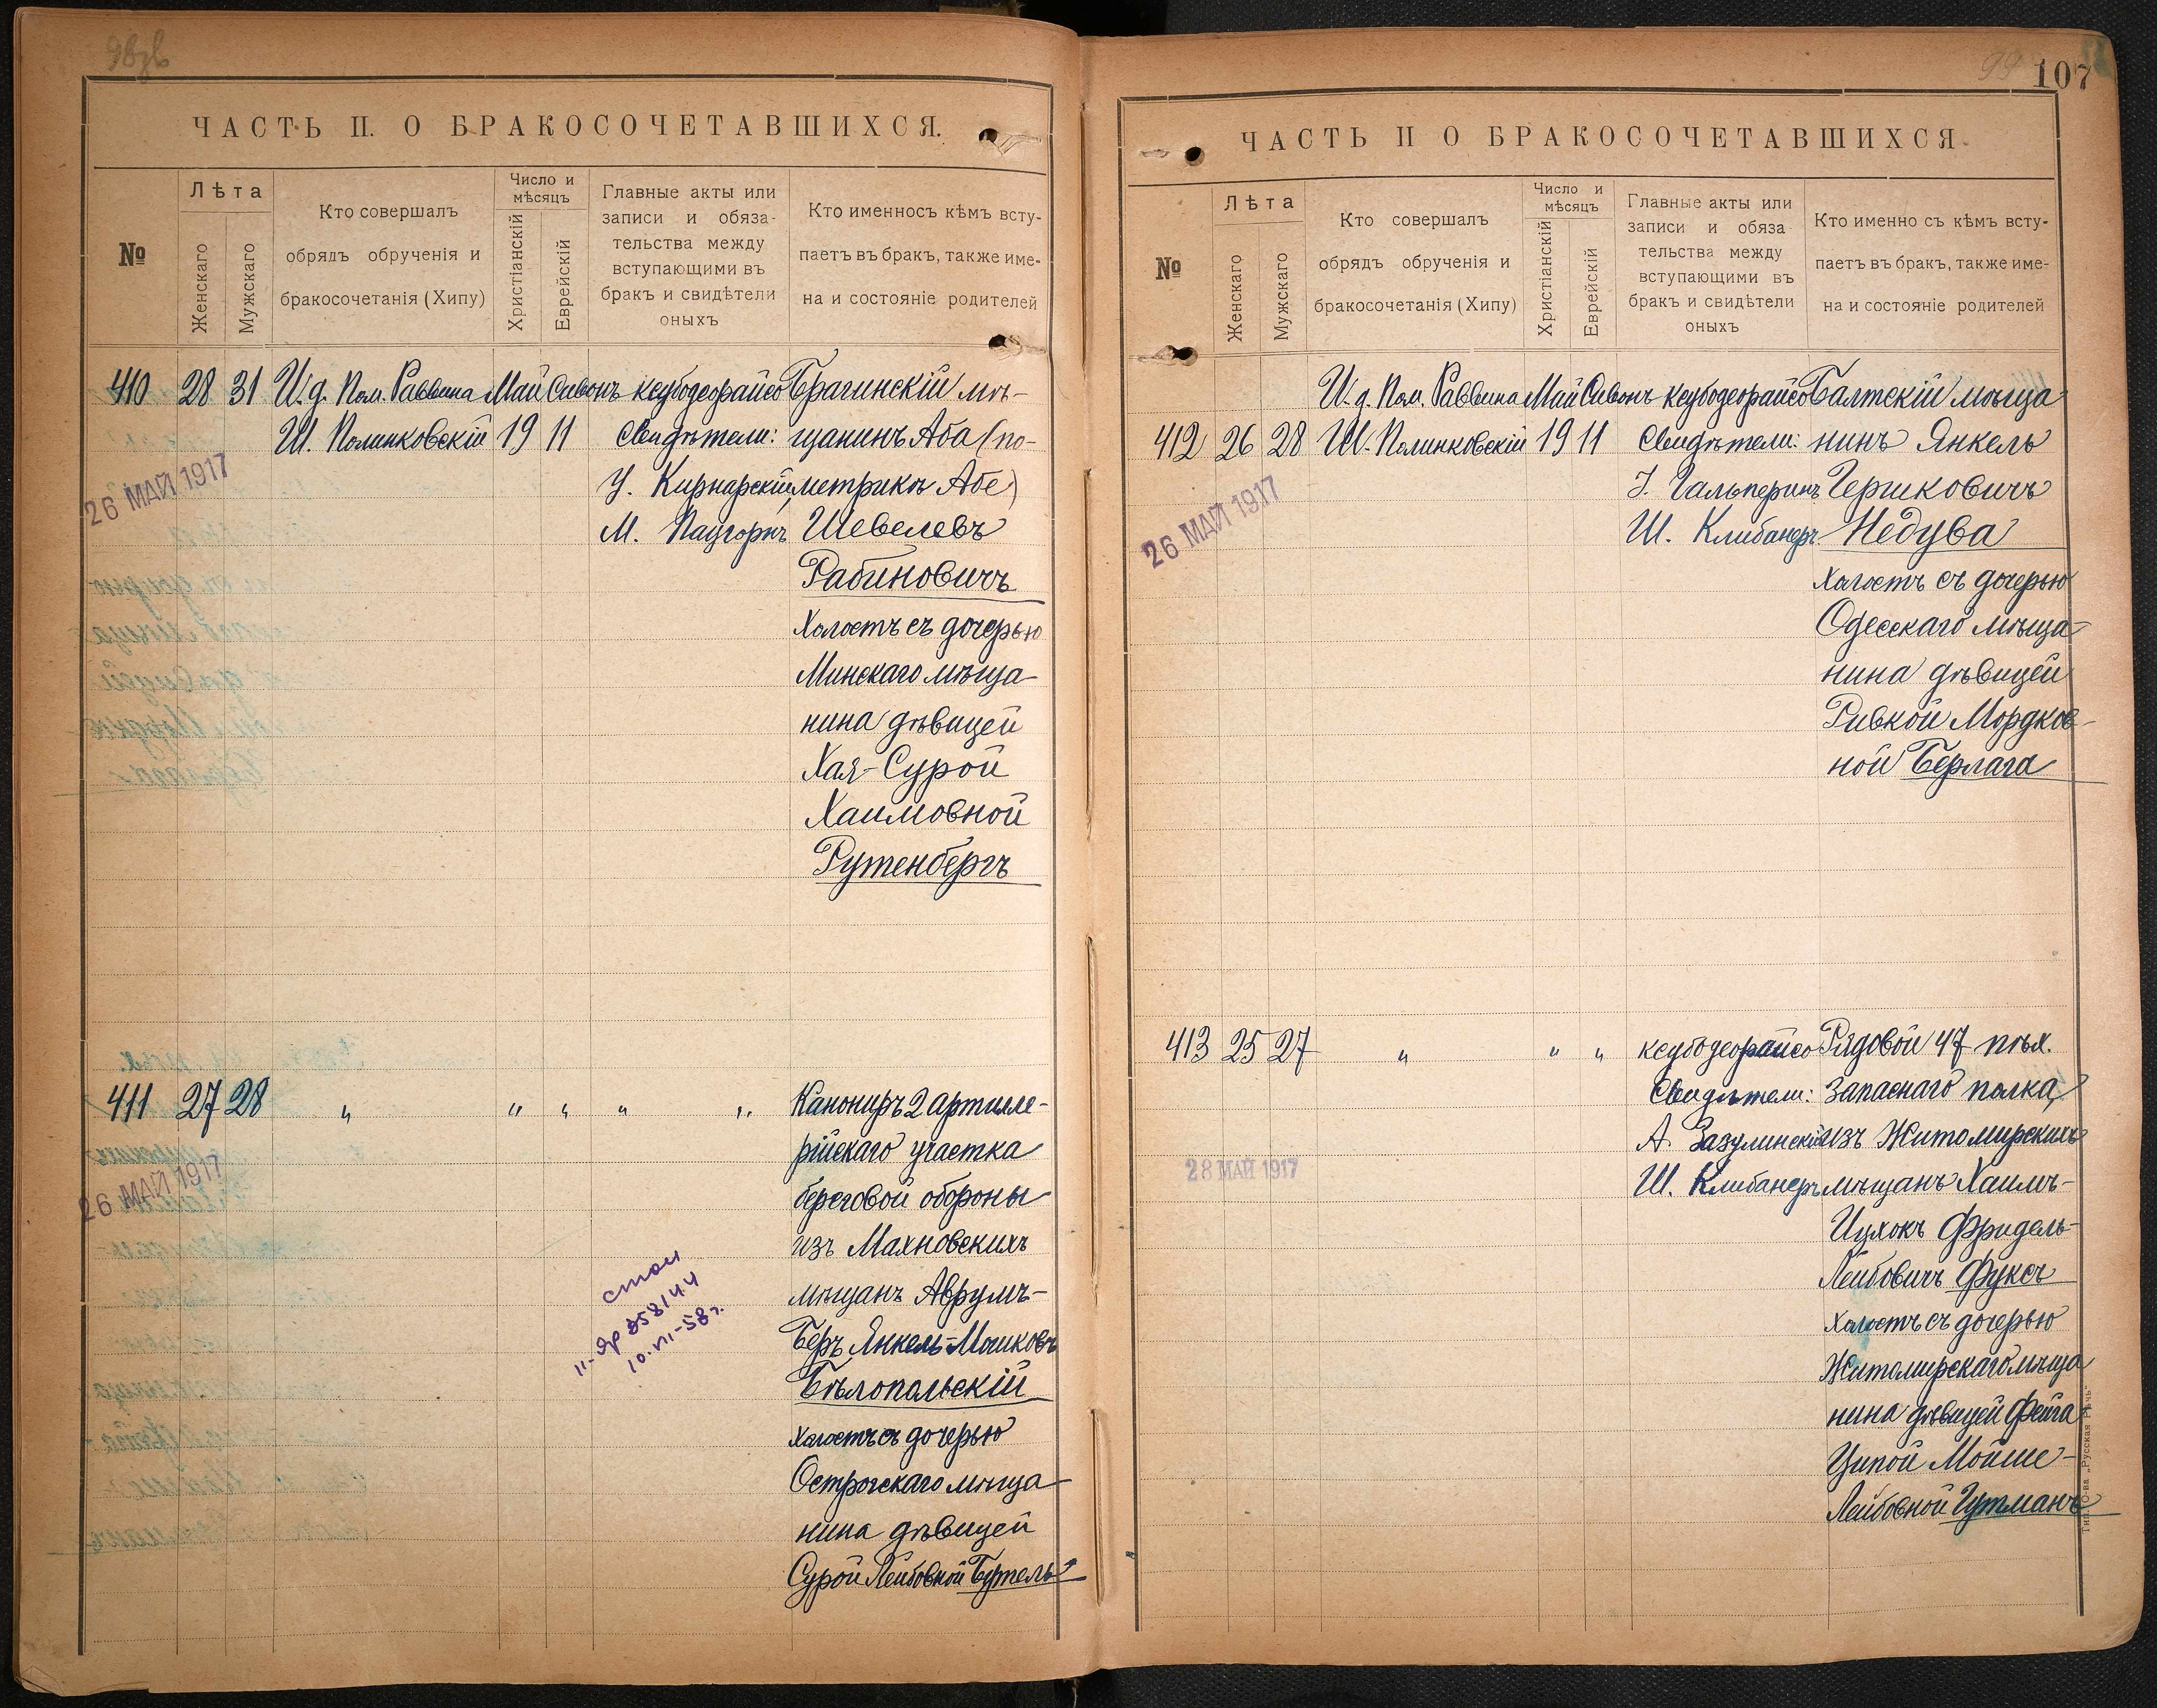 98об
ЧАСТЬ II. О БРАКОСОЧЕТАВШИХСЯ.
№
Лѣта
Женскаго
Мужскаго
Кто совершалъ
обрядъ обрученія и
бракосочетанія (Хипу)
Число и
мѣсяцъ
Христіанскій
Еврейскій
Главные акты или
записи и обяза-
тельства между
вступающими въ
бракъ и свидѣтели
оныхъ
Кто именносъ кѣмъ всту-
паетъ въ бракъ, также име-
на и состояніе родителей
410 28 31 И.д. Пом. Раввина Май Сивонъ ксубодеорайсо Брагинскій мѣ-
Ш. Полинковскій 19 11 Свидѣтели: щанинъ Аба (по-
26 МАЙ 1917
У. Кирнарскій метрикѣ Абе)
М. Шевелевъ
Рабиновичъ
Холостъ съ дочерью
Минскаго мѣща-
нина дѣвицей
Хая-Сурой
Хаимовной
Рутенбергъ
411 27 28 " " " " " Канониръ 2 артилле-
рійскаго участка
26 МАЙ 1917
береговой обороны
изъ Махновскихъ
мѣщанъ Аврумъ-
Беръ Янкель-Мошковъ
Бѣлопольскій
холостъ съ дочерью
Острогскаго мѣща-
нина дѣвицей
Сурой Лейбовной Бутель
10.VII-58г.
99
107
ЧАСТЬ II О БРАКОСОЧЕТАВШИХСЯ
№
Лѣта
Женскаго
Мужскаго
Кто совершалъ
обрядъ обрученія и
бракосочетанія (Хипу)
Число и
мѣсяцъ
Христіанскій
Еврейскій
Главные акты или
записи и обяза-
тельства между
вступающими въ
бракъ и свидѣтели
оныхъ
Кто именно съ кѣмъ всту-
паетъ въ бракъ, также име-
на и состояніе родителей
И.д. Пом. Раввина Май Сивонъ ксубодеорайсо Балтскій мѣща
412 26 28 Ш. Полинковскій 19 11 Свидѣтели: нинъ Янкель
26 МАЙ 1917
I. Гальперинъ Гершковичъ
Ш. Клибанеръ Недува
Холостъ съ дочерью
Одесскаго мѣща-
нина дѣвицей
Ривкой Мордков-
ной Берлага
413 25 27 " " " ксубодеорайсо Рядовой 47 пѣх.
Свидѣтели: запаснаго полка,
А. Зазулинскій изъ Житомирскихъ
28 МАЙ 1917
Ш. Клибанеръ мѣщанъ Хаимъ-
Ицхокъ Фридель-
Лейбовичъ Фуксъ
холостъ съ дочерью
Житомирскаго мѣща
нина дѣвицей Фейга-
Ципой Мойше-
Лейбовной Гутманъ
Тип. О-ва „Русская Рѣчь"